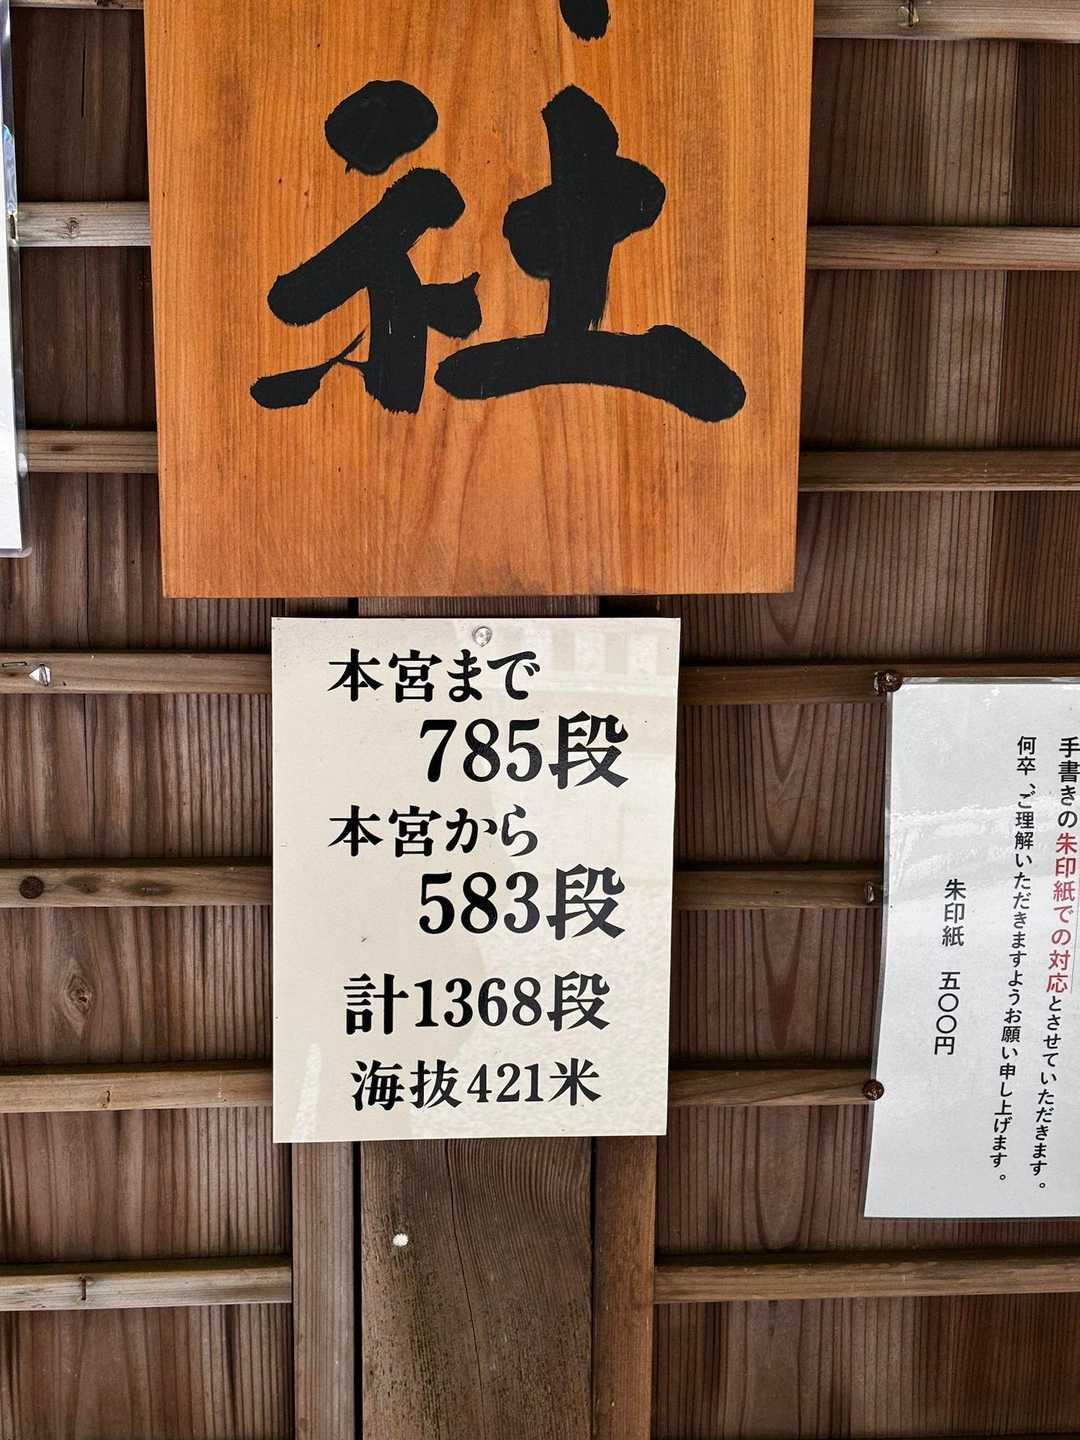 社
本宮まで
785段
本宮から
583段
計1368段
海抜421米
手書きの朱印紙での対応とさせていただきます。
何卒、ご理解いただきますようお願い申し上げます。
朱印紙　五〇〇円